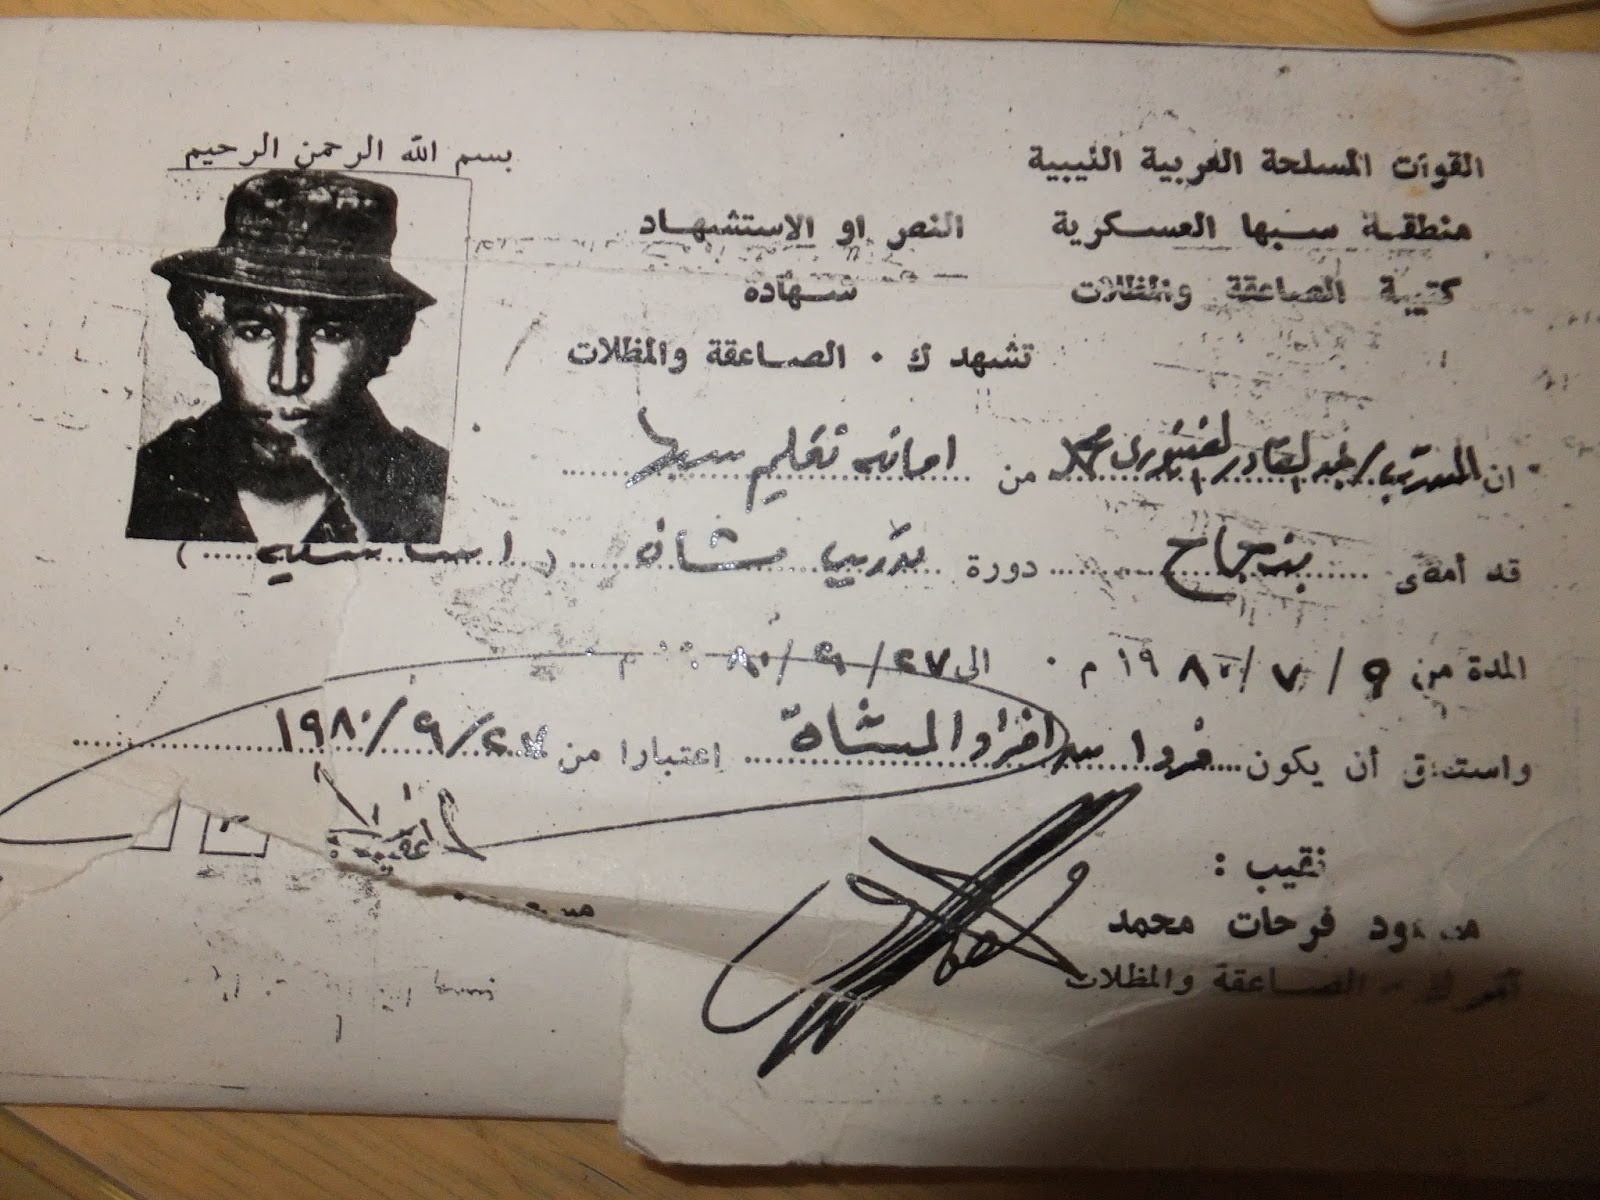 بسم الله الرحمن الرحيم
القوات المسلحة العربية الليبية
منطقة سبها العسكرية
النصر او الاستشهاد
كتيبة الصاعقة والمظلات
شهادة
تشهد ك . الصاعقة والمظلات
ان المتدرب / عبد القادر محمد من امانة تعليم سبها
قد أمضى بنجاح دورة تدريب مشاة ( اساسية )
المدة من ٩ / ٧ / ١٩٨٠ م . الى ٢٧ / ٩ / ١٩٨٠ م
واستحق أن يكون فردا من افراد المشاة اعتبارا من ٢٧ / ٩ / ١٩٨٠
نقيب :
فرحات محمد
آمر ك . الصاعقة والمظلات